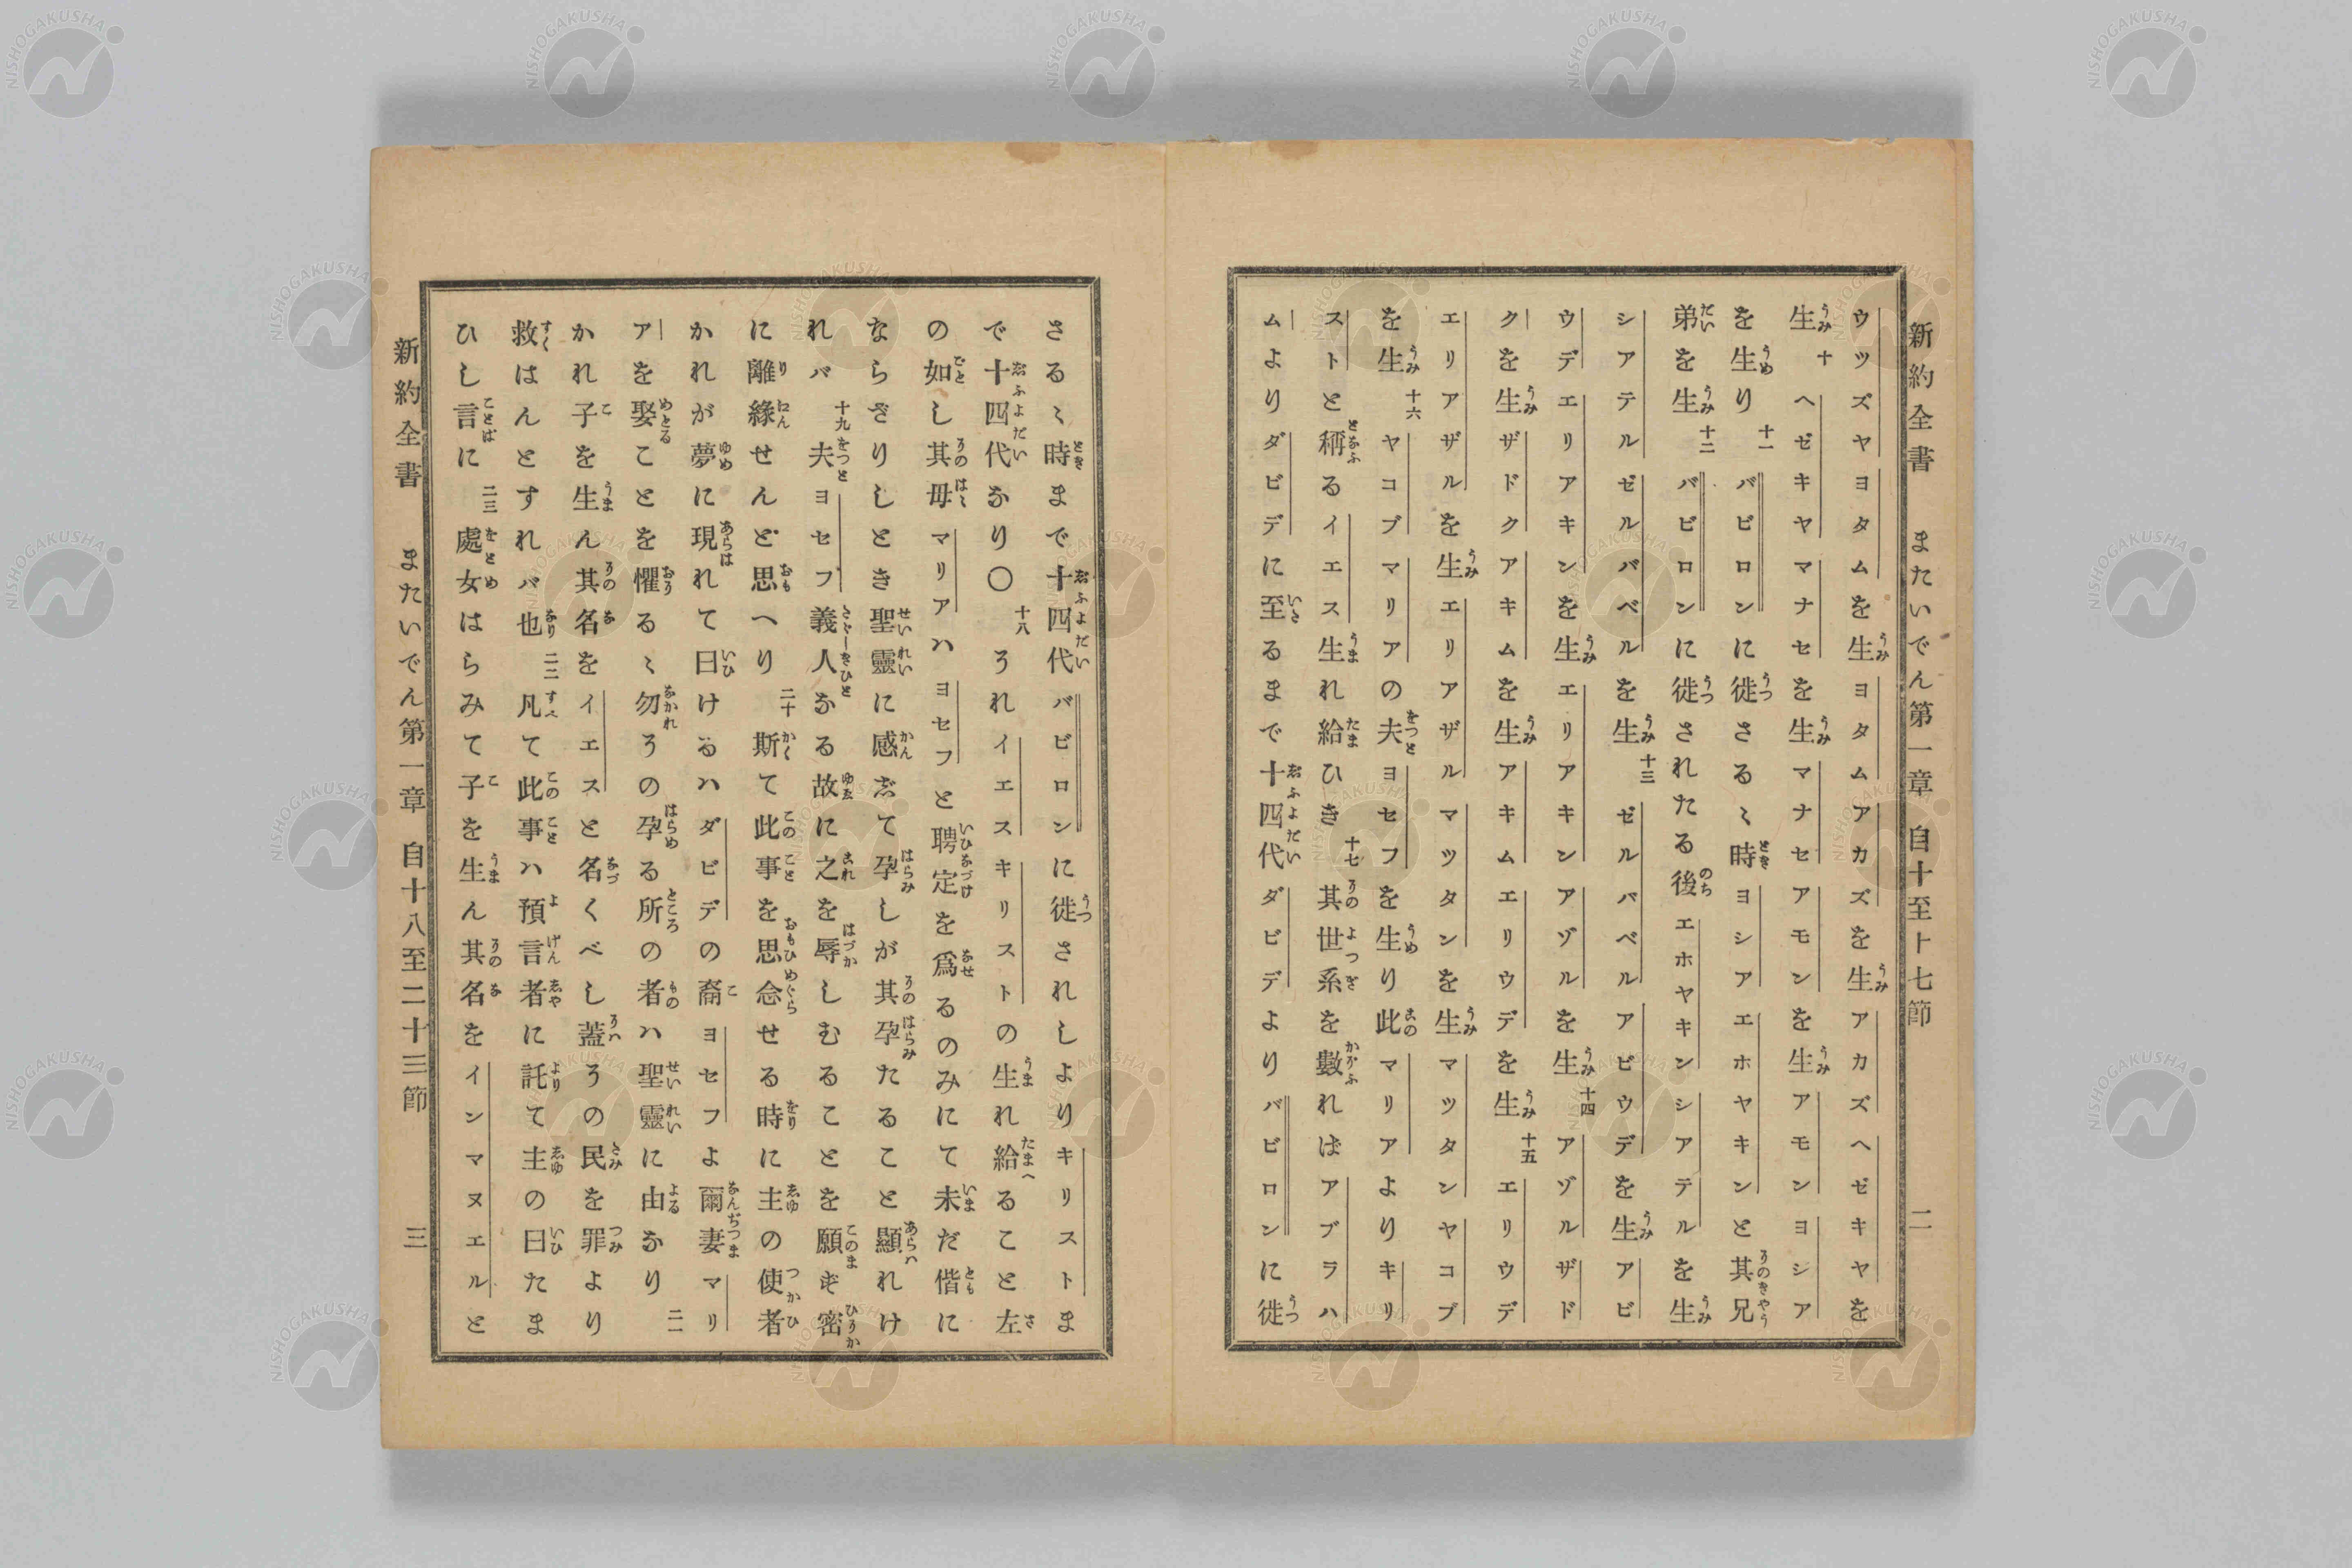 新約全書 またいでん第一章 自十至十七節 二
ウツズヤヨタムを生ヨタムアカズを生アカズヘゼキヤを
生十ヘゼキヤマナセを生マナセアモンを生アモンヨシア
を生り十一バビロンに徙さるゝ時ヨシアエホヤキンと其兄
弟を生十二バビロンに徙されたる後エホヤキンシアテルを生
シアテルゼルバベルを生十三ゼルバベルアビウデを生アビ
ウデエリアキンを生エリアキンアゾルを生十四アゾルザド
クを生ザドクアキムを生アキムエリウデを生十五エリウデ
エリアザルを生エリアザルマツタンを生マツタンヤコブ
を生十六ヤコブマリアの夫ヨセフを生り此マリアよりキリ
ストと稱るイエス生れ給ひき十七其世系を數ればアブラハ
ムよりダビデに至るまで十四代ダビデよりバビロンに徙
さるゝ時まで十四代バビロンに徙されしよりキリストま
で十四代なり〇十八それイエスキリストの生れ給ること左
の如し其母マリアハヨセフと聘定を爲るのみにて未だ偕に
ならざりしとき聖靈に感じて孕しが其孕たること顯れけ
れバ十九夫ヨセフ義人なる故に之を辱しむることを願ず密
に離縁せんと思へり二十斯て此事を思念せる時に主の使者
かれが夢に現れて曰けるハダビデの裔ヨセフよ爾妻マリ
アを娶ことを懼るゝ勿その孕る所の者ハ聖靈に由なり二一
かれ子を生ん其名をイエスと名くべし蓋その民を罪より
救はんとすれバ也二二凡て此事ハ預言者に託て主の曰たま
ひし言に二三處女はらみて子を生ん其名をインマヌエルと
新約全書 またいでん第一章 自十八至二十三節 三
NISHOGAKUSHA